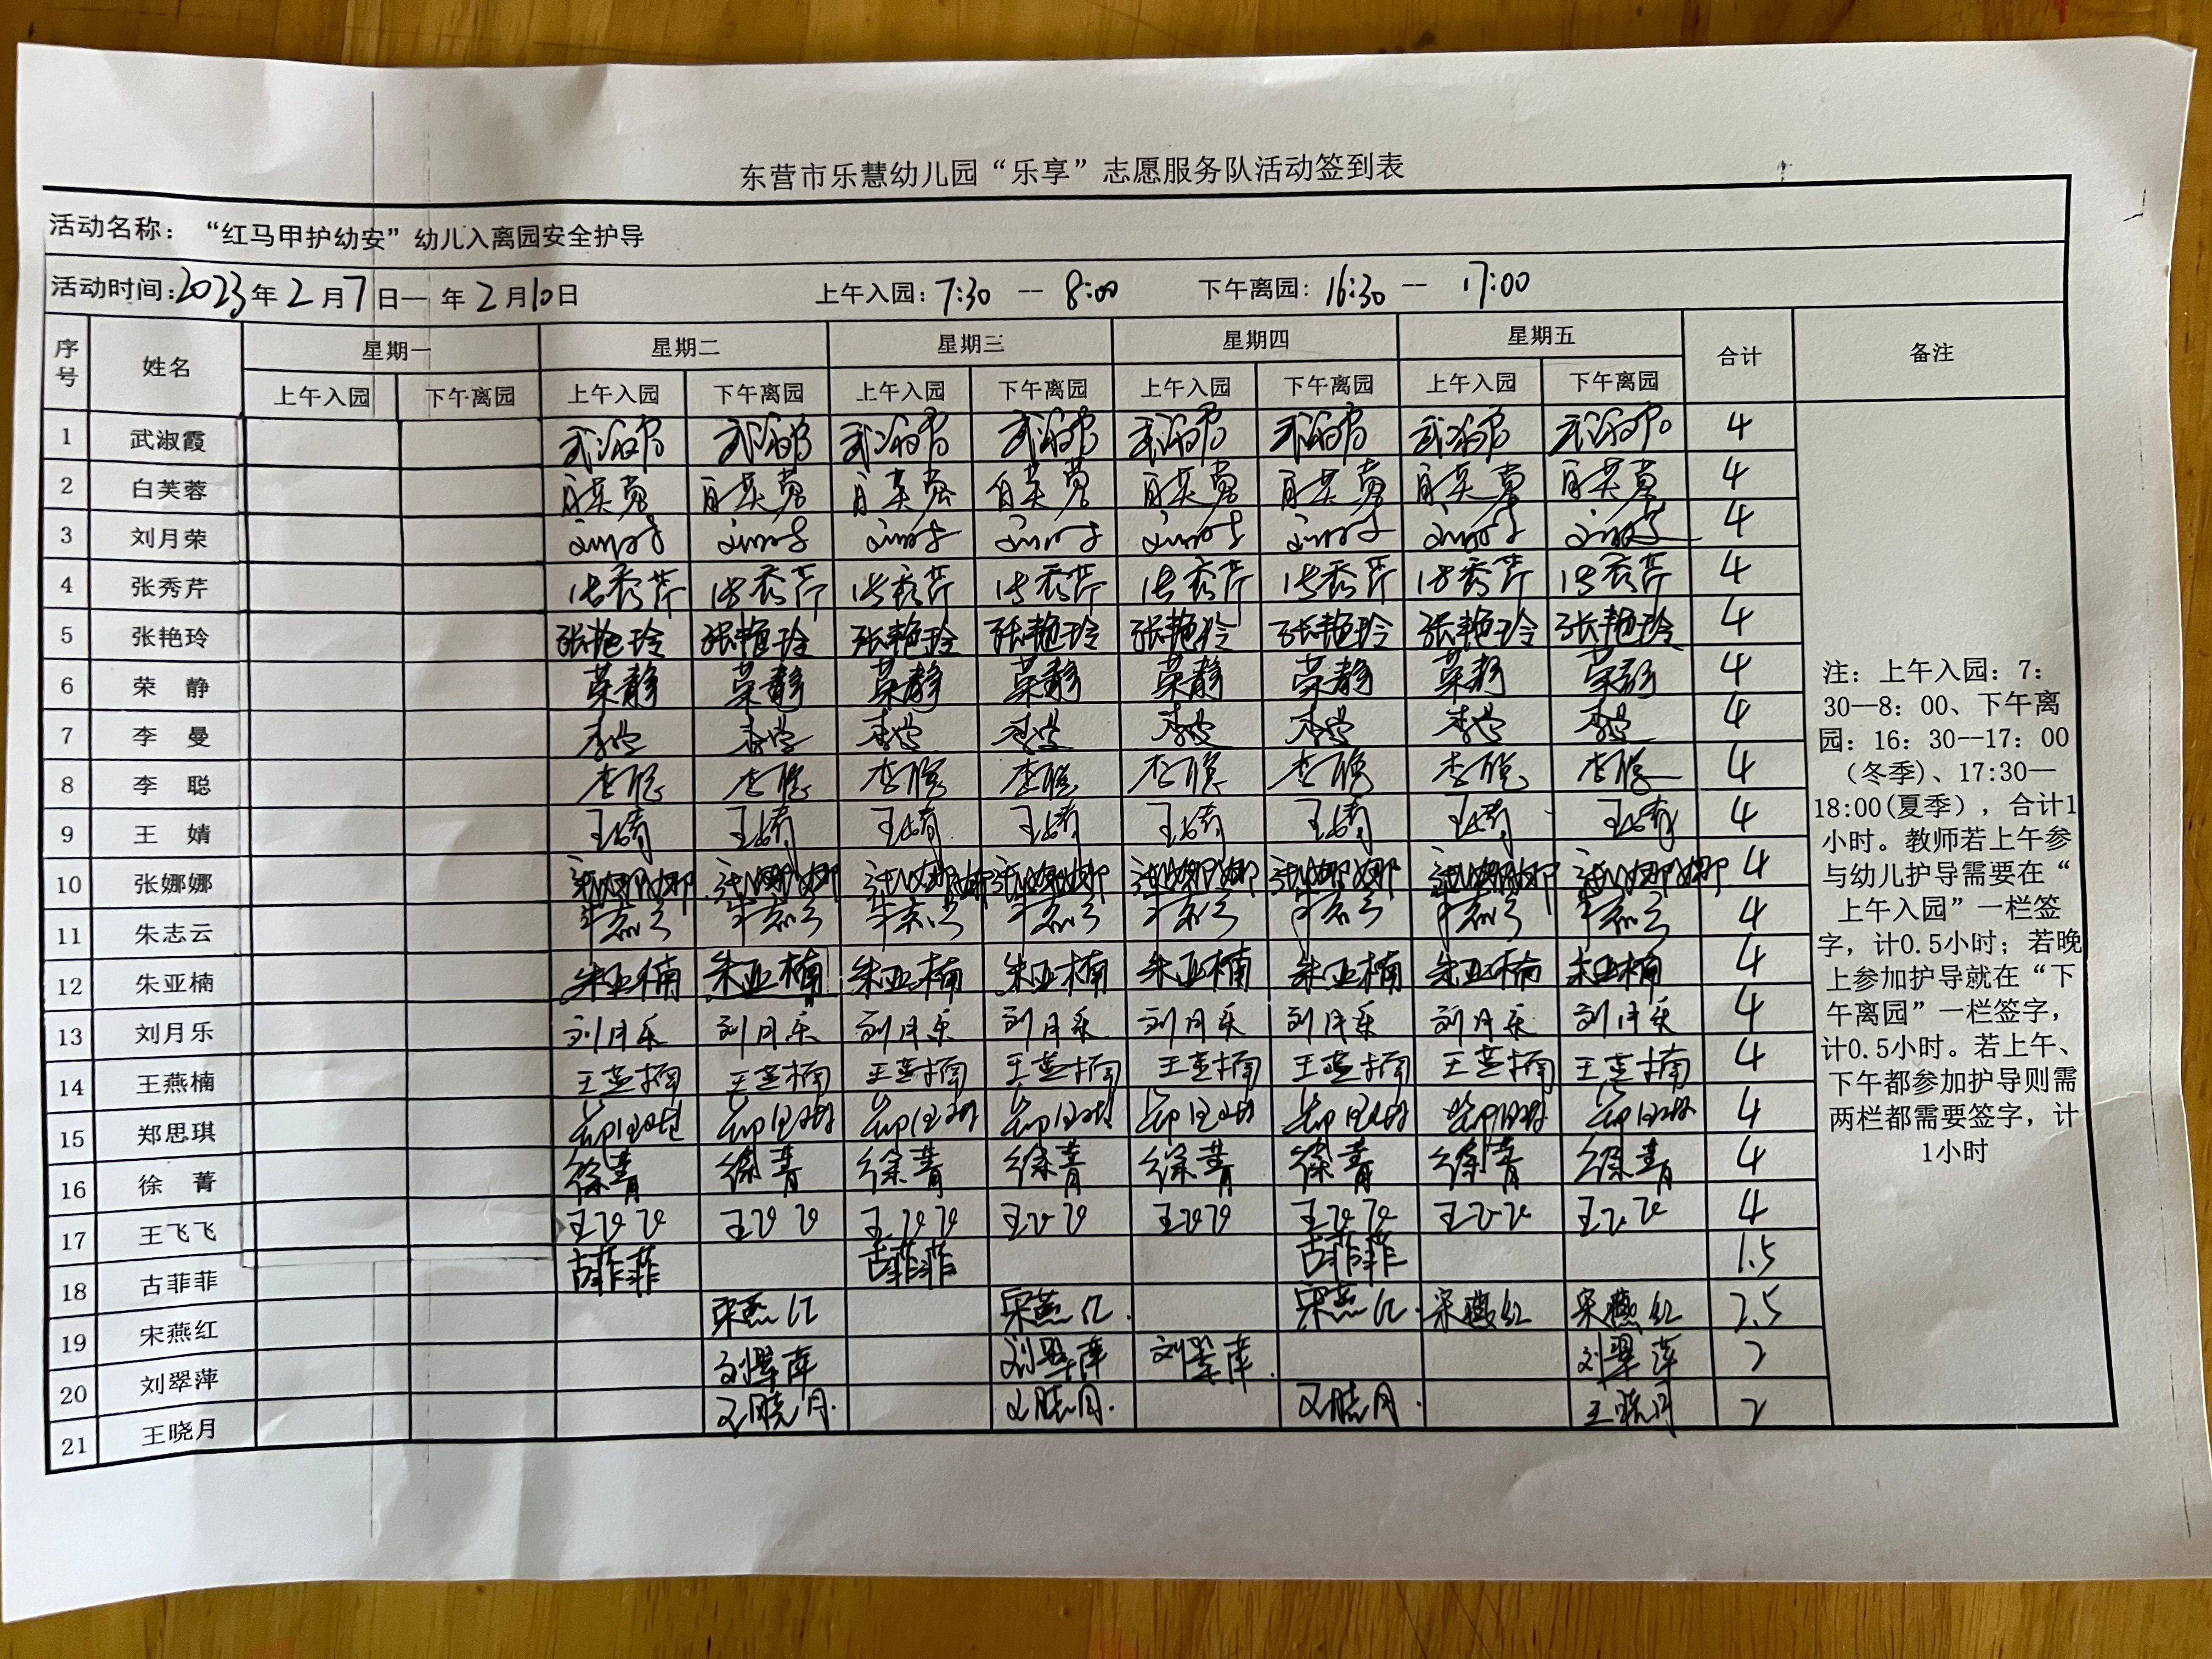 东营市乐慧幼儿园“乐享”志愿服务队活动签到表
活动名称：“红马甲护幼安”幼儿入离园安全护导
活动时间:2023年2月7日—年2月10日 上午入园:7:30--8:00 下午离园:16:30--17:00
序号 姓名 星期一 星期二 星期三 星期四 星期五 合计 备注
上午入园 下午离园 上午入园 下午离园 上午入园 下午离园 上午入园 下午离园 上午入园 下午离园
1 武淑霞 武淑霞 武淑霞 武淑霞 武淑霞 武淑霞 武淑霞 武淑霞 武淑霞 4
2 白芙蓉 白芙蓉 白芙蓉 白芙蓉 白芙蓉 白芙蓉 白芙蓉 白芙蓉 白芙蓉 4
3 刘月荣 刘月荣 刘月荣 刘月荣 刘月荣 刘月荣 刘月荣 刘月荣 刘月荣 4
4 张秀芹 张秀芹 张秀芹 张秀芹 张秀芹 张秀芹 张秀芹 张秀芹 张秀芹 4
5 张艳玲 张艳玲 张艳玲 张艳玲 张艳玲 张艳玲 张艳玲 张艳玲 张艳玲 4
6 荣静 荣静 荣静 荣静 荣静 荣静 荣静 荣静 荣静 4
7 李曼 李曼 李曼 李曼 李曼 李曼 李曼 李曼 李曼 4
8 李聪 李聪 李聪 李聪 李聪 李聪 李聪 李聪 李聪 4
9 王婧 王婧 王婧 王婧 王婧 王婧 王婧 王婧 王婧 4
10 张娜娜 张娜娜 张娜娜 张娜娜 张娜娜 张娜娜 张娜娜 张娜娜 张娜娜 4
11 朱志云 朱志云 朱志云 朱志云 朱志云 朱志云 朱志云 朱志云 朱志云 4
12 朱亚楠 朱亚楠 朱亚楠 朱亚楠 朱亚楠 朱亚楠 朱亚楠 朱亚楠 朱亚楠 4
13 刘月乐 刘月乐 刘月乐 刘月乐 刘月乐 刘月乐 刘月乐 刘月乐 刘月乐 4
14 王燕楠 王燕楠 王燕楠 王燕楠 王燕楠 王燕楠 王燕楠 王燕楠 王燕楠 4
15 郑思琪 郑思琪 郑思琪 郑思琪 郑思琪 郑思琪 郑思琪 郑思琪 郑思琪 4
16 徐菁 徐菁 徐菁 徐菁 徐菁 徐菁 徐菁 徐菁 徐菁 4
17 王飞飞 王飞飞 王飞飞 王飞飞 王飞飞 王飞飞 王飞飞 王飞飞 王飞飞 4
18 古菲菲 古菲菲 古菲菲 古菲菲 1.5
19 宋燕红 宋燕红 宋燕红 宋燕红 宋燕红 宋燕红 2.5
20 刘翠萍 刘翠萍 刘翠萍 刘翠萍 刘翠萍 2
21 王晓月 王晓月 王晓月 王晓月 王晓月 2
注：上午入园：7：
30—8：00、下午离
园：16：30—17：00
（冬季）、17:30—
18:00(夏季），合计1
小时。教师若上午参
与幼儿护导需要在“
上午入园”一栏签
字，计0.5小时；若晚
上参加护导就在“下
午离园”一栏签字，
计0.5小时。若上午、
下午都参加护导则需
两栏都需要签字，计
1小时